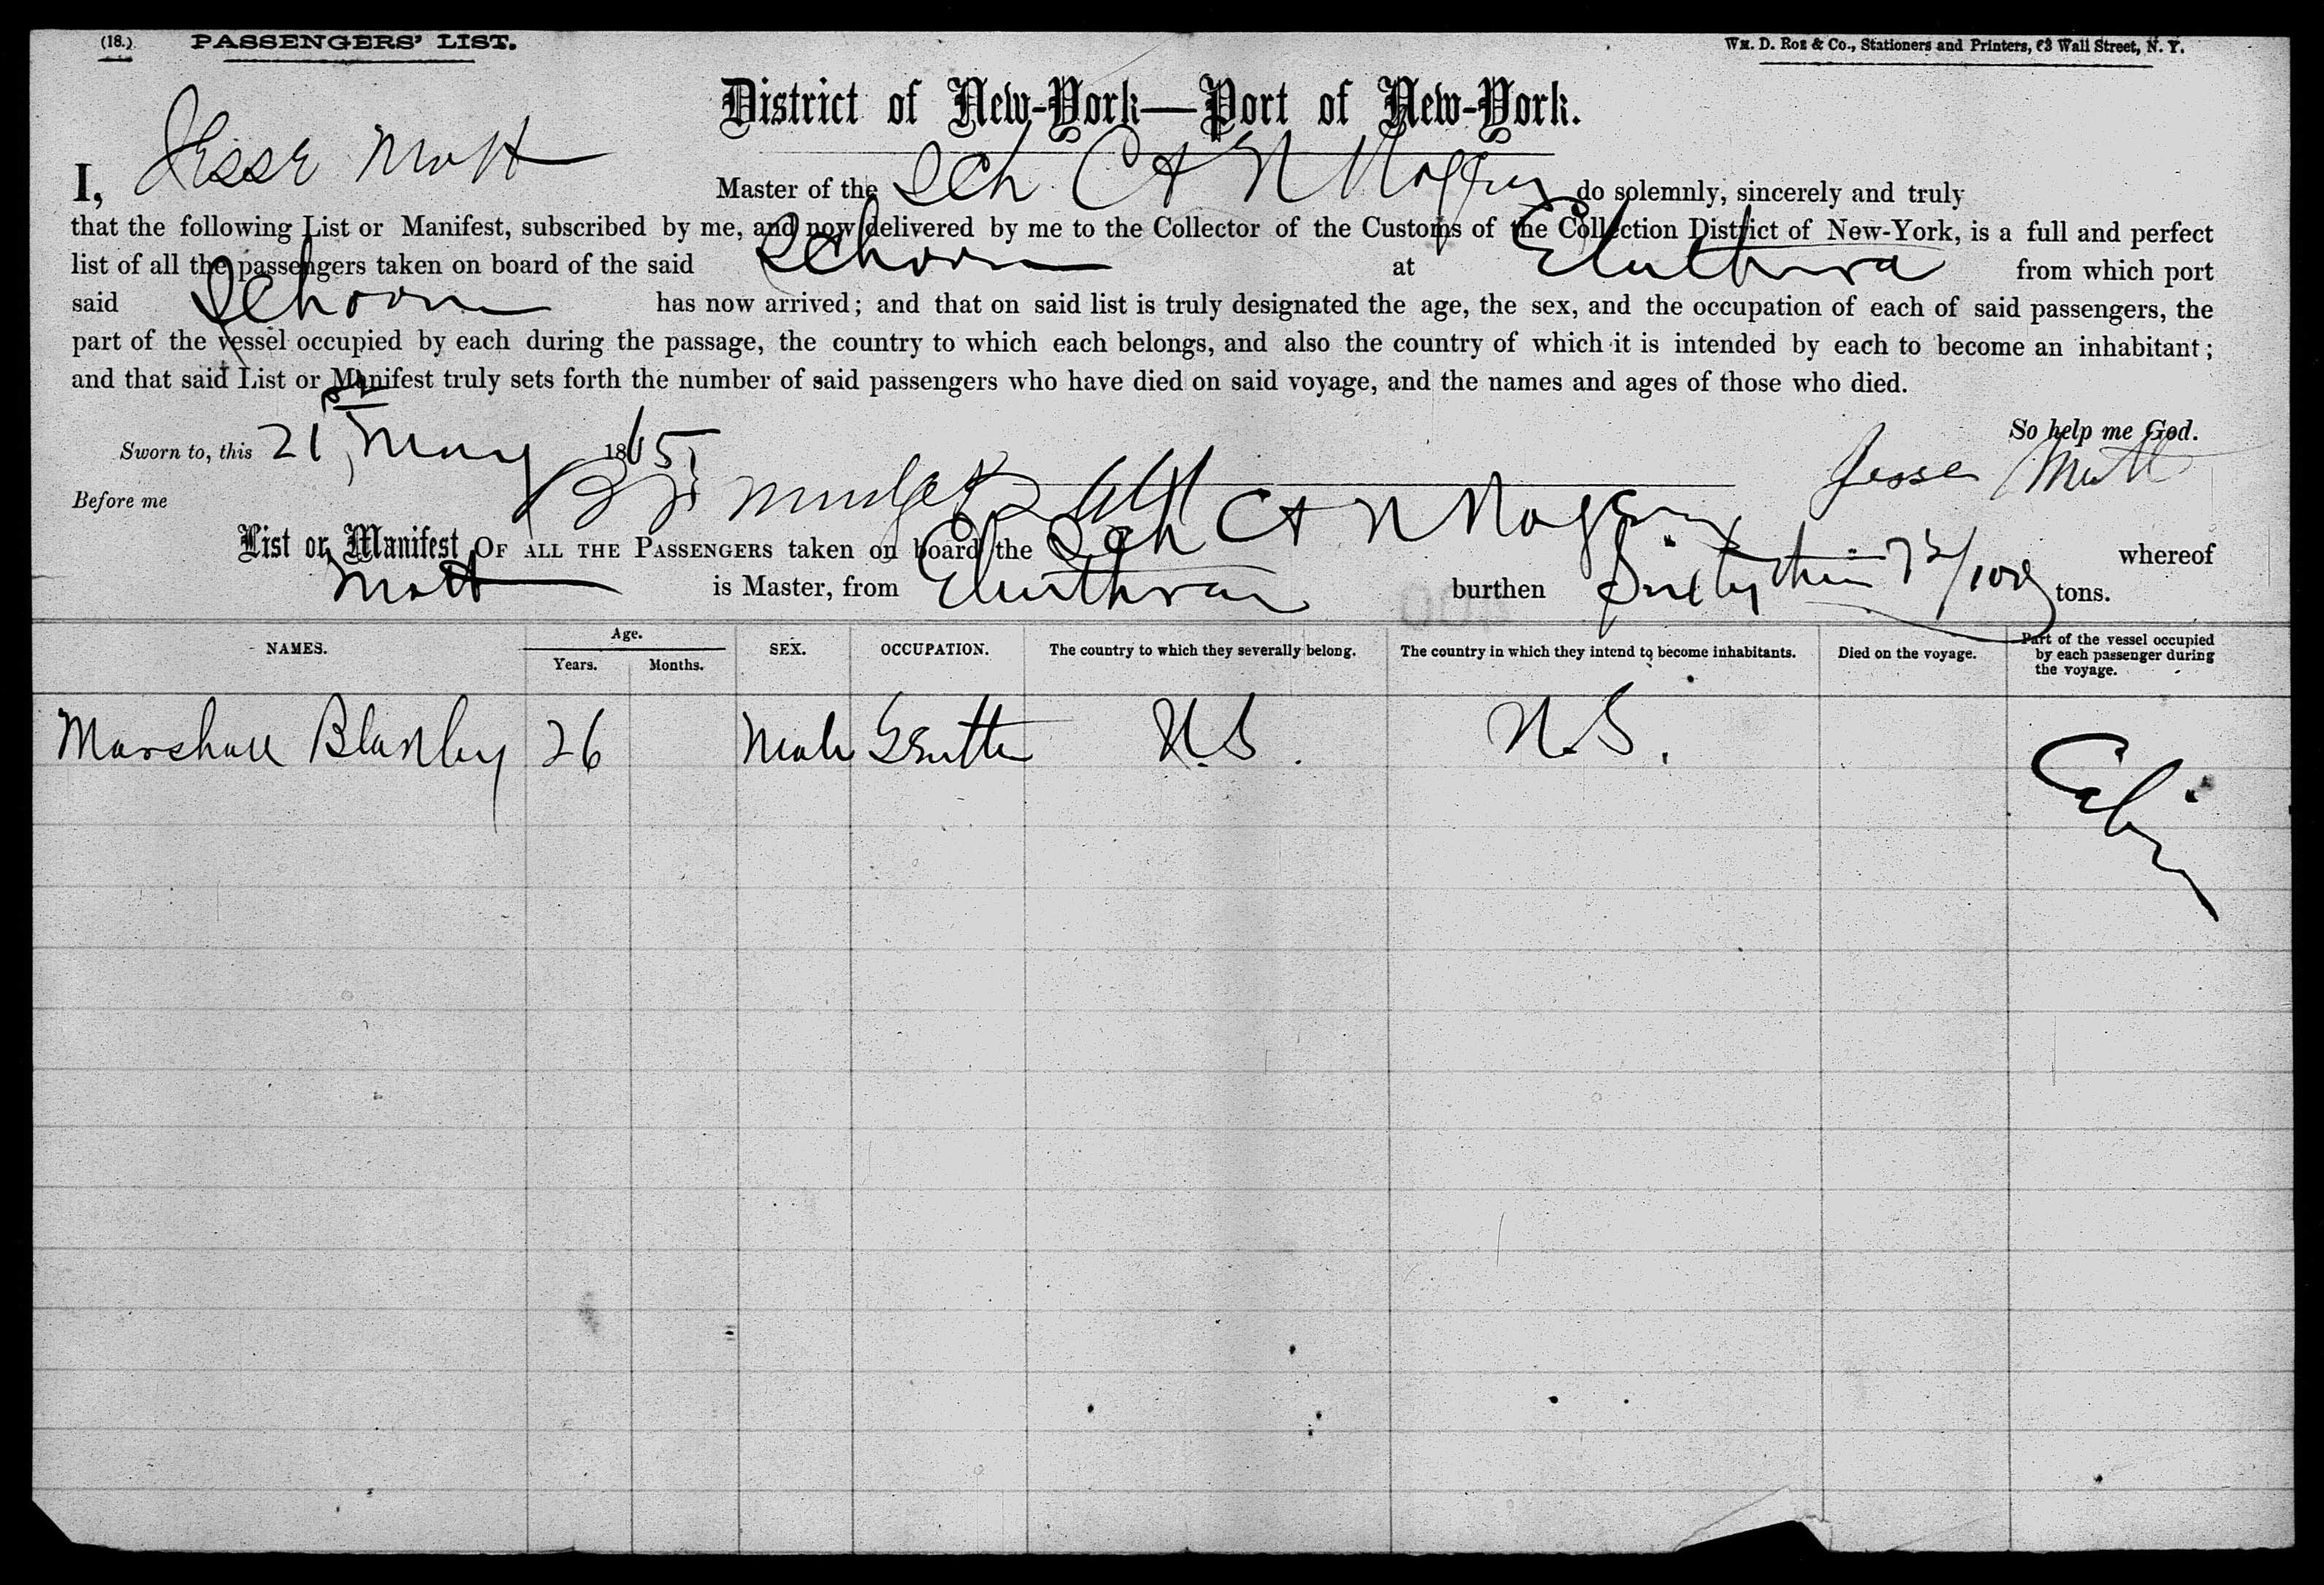 (18.) PASSENGERS' LIST. Wm. D. Roe & Co., Stationers and Printers, 63 Wall Street, N. Y.
District of New-York—Port of New-York.
I, Jesse Mott Master of the Sch C & N Rogers do solemnly, sincerely and truly
that the following List or Manifest, subscribed by me, and now delivered by me to the Collector of the Customs of the Collection District of New-York, is a full and perfect
list of all the passengers taken on board of the said Schoon at Eluthera from which port
said Schoon has now arrived; and that on said list is truly designated the age, the sex, and the occupation of each of said passengers, the
part of the vessel occupied by each during the passage, the country to which each belongs, and also the country of which it is intended by each to become an inhabitant;
and that said List or Manifest truly sets forth the number of said passengers who have died on said voyage, and the names and ages of those who died.
So help me God.
Sworn to, this 21st May 1865 Jesse Mott
Before me
List or Manifest OF ALL THE PASSENGERS taken on board the Sch C & N Rogers whereof
Mott is Master, from Eluthera burthen Sixty 72/100 tons.
NAMES. Age. Years. Months. SEX. OCCUPATION. The country to which they severally belong. The country in which they intend to become inhabitants. Died on the voyage. Part of the vessel occupied by each passenger during the voyage.
Marshall 26 Male U.S. U.S. Cabin